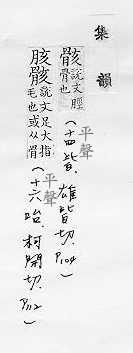 集韻
骸 說文脛骨也 平聲 (十四皆,雄皆切.P104)
胲骸 說文足大指毛也或从骨 平聲 (十六咍.柯開切.P112)